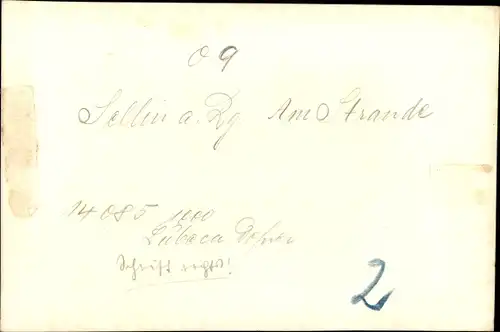 09
Sellin a. Rg Am Strande
14085 1000
Lübeca
Schrift rechts!
2